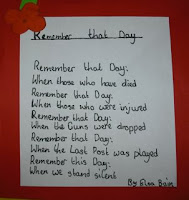 Remember that Day
Remember that Day:
When those who have died
Remember that Day:
When those who were injured
Remember that Day:
When the Guns were dropped
Remember that Day:
When the Last Post was played
Remember this Day:
When we stand silent
By